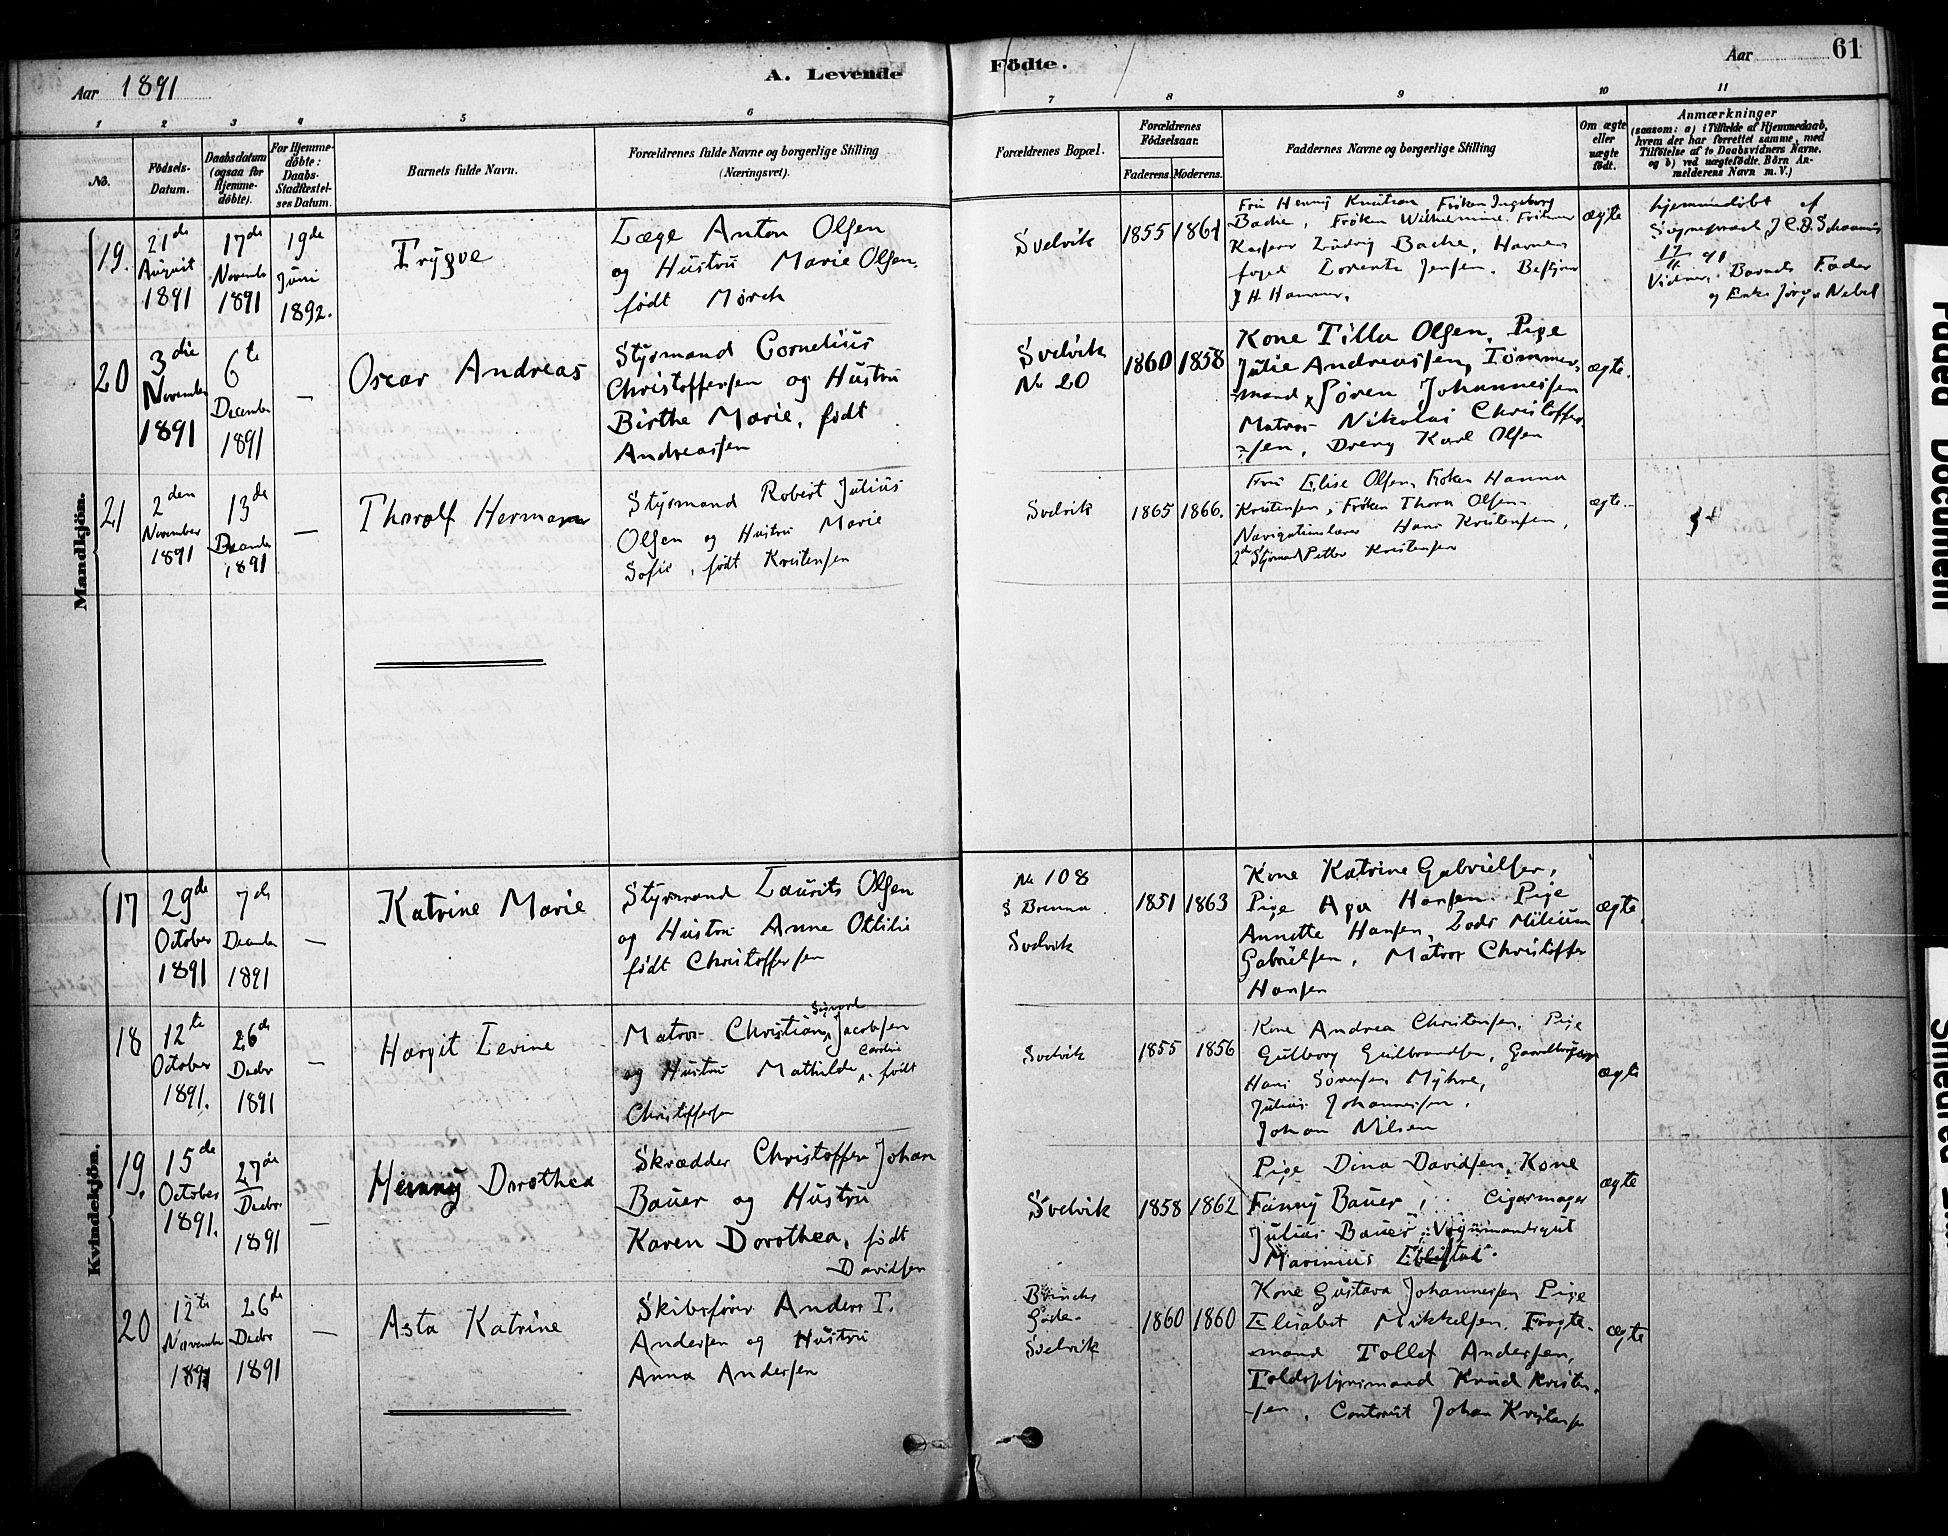 Aar 1891
A. Levende
Födte.
Aar
61
1
2
3
4
5
6
7
8
9
10
11
No.
Födsels-
Datum.
Daabsdatum
(ogsaa for
Hjemme-
döbte).
For Hjemme-
döbte:
Daabs-
Stadfæstel-
ses Datum.
Barnets fulde Navn.
Forældrenes fulde Navne og borgerlige Stilling
(Næringsvei).
Forældrenes Bopæl.
Forældrenes
Födselsaar.
Faderens.
Moderens.
Faddernes Navne og borgerlige Stilling
Om ægte
eller
uægte
födt.
Anmærkninger
(saasom: a) i Tilfælde af Hjemmedaab,
hvem der har forrettet samme, med
Tilföielse af to Daabsvidners Navne.
og b) ved uægtefödte Börn An-
melderens Navn m. V.)
Mandkjön.
19.
21de
August
1891
17de
Novembr
1891
19de
Juni
1892.
Trygve
Læge Anton Olsen
og Hustru Marie Olsen,
født Mørch
Svelvik
1855
1861
Fru Henny Knutsen, Frøken Ingeborg
Bache, Frøken Wilhelmine
Kaspar Ludvig Bache, Havne-
foged Lorentz Jensen.
J H Hammer.
ægte
hjemmedøbt af
Sognepræst J C D
17/11 91
Vidner, Barnets Fader
og Enke Nebel
20
3die
November
1891
6te
December
1891
—
Oscar Andreas
Styrmand Cornelius
Christoffersen og Hustru
Birthe Marie, født
Andreassen
Svelvik
No 20
1860
1858
Kone Tilla Olsen, Pige
Julie Andreassen, Tømmer-
mand Søren Johannessen
Matros Nikolai Christoffer-
sen, Dreng Karl Olsen
ægte.
21
2den
November
1891
13de
December
1891
—
Thorolf Hermann
Styrmand Robert Julius
Olsen og Hustru Marie
Sofie, født Kristensen
Svelvik
1865
1866.
Fru Elise Olsen, Frøken Hanna
Kristensen, Frøken Thora Olsen
Navigationslærer Hans Kristensen,
2den Styrmand Petter Kristensen
ægte
Kvindekjön.
17
29de
October
1891
7de
December
1891
—
Katrine Marie
Styrmand Laurits Olsen
og Hustru Anne Ottilie
født Christoffersen
No 108
S Brenna
Svelvik
1851
1863
Kone Katrine Gabrielsen,
Pige Aga Hansen. Pige
Annette Hansen, Lods Milium
Gabrielsen, Matros Christoffer
Hansen
ægte.
18
12te
October
1891.
26de
Decbr
1891
—
Hargit Levine
Matros Christian Sigvard Jacobsen
og Hustru Mathilde Caroline født
Christoffersen
Svelvik
1855
1856
Kone Andrea Christensen, Pige
Gulborg Gulbrandsen, Gaardbruger
Hans Sørensen Myhre,
Julius Johannessen,
Johan Nilsen
ægte
19.
15de
October
1891.
27de
Decbr.
1891
—
Henny Dorothea
Skrædder Christoffer Johan
Bauer og Hustru
Karen Dorothea, født
Davidsen
Svelvik
1858
1862
Pige Dina Davidsen, Kone
Fanny Bauer, Cigarmager
Julius Bauer, Vognmandsgut
Marinius
ægte
20
12te
November
1891
26de
Decbr
1891
—
Asta Katrine
Skibsfører Anders T.
Andersen og Hustru
Anna Andersen
Gade.
Svelvik
1860
1860
Kone Gustava Johannessen Pige
Elisabet Mikkelsen. Fragte-
mand Tollef Andersen,
Toldopsynsmand Knud Kristen-
sen, Contorist Johan Kristensen
ægte
Faded Document